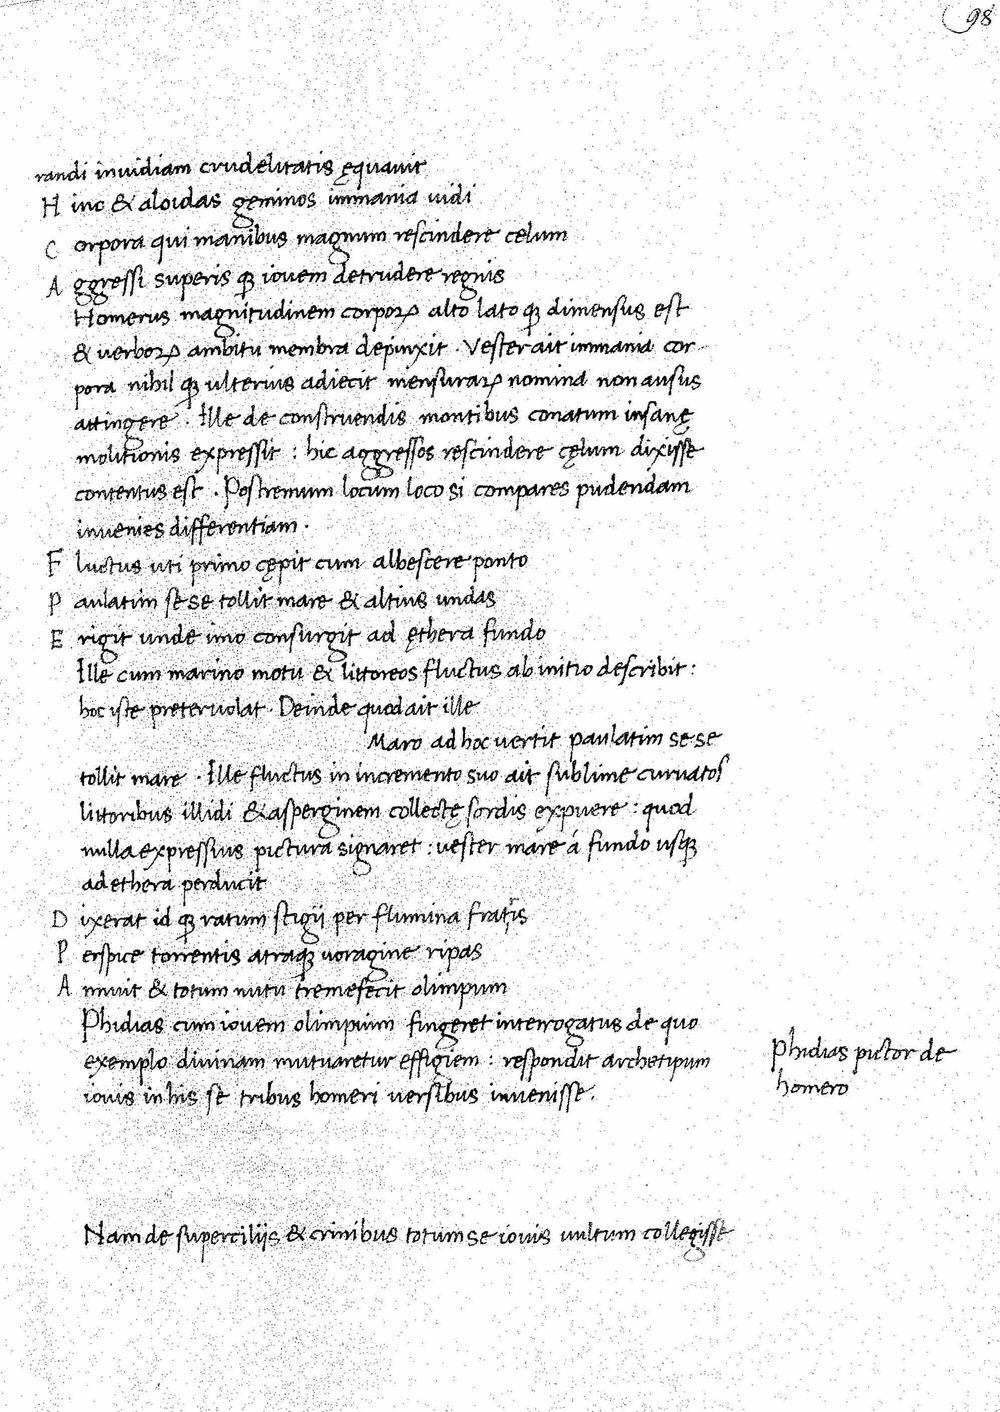 98
randi inuidiam crudelitatis ęquauit
H inc & aloidas geminos inmania uidi
C orpora qui manibus magnum rescindere celum
A ggressi superis qꝫ iouem detrudere regnis
Homerus magnitudinem corpoꝝ alto lato qꝫ dimensus est
& uerboꝝ ambitu membra depinxit . Vester ait inmania cor
pora nihil qꝫ ulterius adiecit mensuraꝝ nomina non ausus
attingere . Ille de construendis montibus conatum insanę
molitionis expressit : hic aggressos rescindere cęlum dixisse
contentus est . Postremum locum loco si compares pudendam
inuenies differentiam .
F luctus uti primo cępit cum albescere ponto
P aulatim se se tollit mare & altius undas
E rigit unde imo consurgit ad ęthera fundo
Ille cum marino motu & littoreos fluctus ab initio describit :
hoc iste preteruolat . Deinde quod ait ille
Maro ad hoc uertit paulatim se se
tollit mare . Ille fluctus in incremento suo ait sublime curuatos
littoribus illidi & asperginem collectę sordis expuere : quod
nulla expressius pictura signaret : uester mare á fundo usqꝫ
ad ethera perducit
D ixerat id qꝫ ratum stigij per flumina fratris
P erspice torrentis atraqꝫ uoragine ripas
A nnuit & totum nutu tremefecit olimpum
Phidias cum iouem olimpium fingeret interrogatus de quo
exemplo diuinam mutuaretur effigiem : respondit archetipum
iouis in his se tribus homeri uersibus inuenisse .
Phidias pictor de
homero
Nam de supercilijs & crinibus totum se iouis uultum collegisse